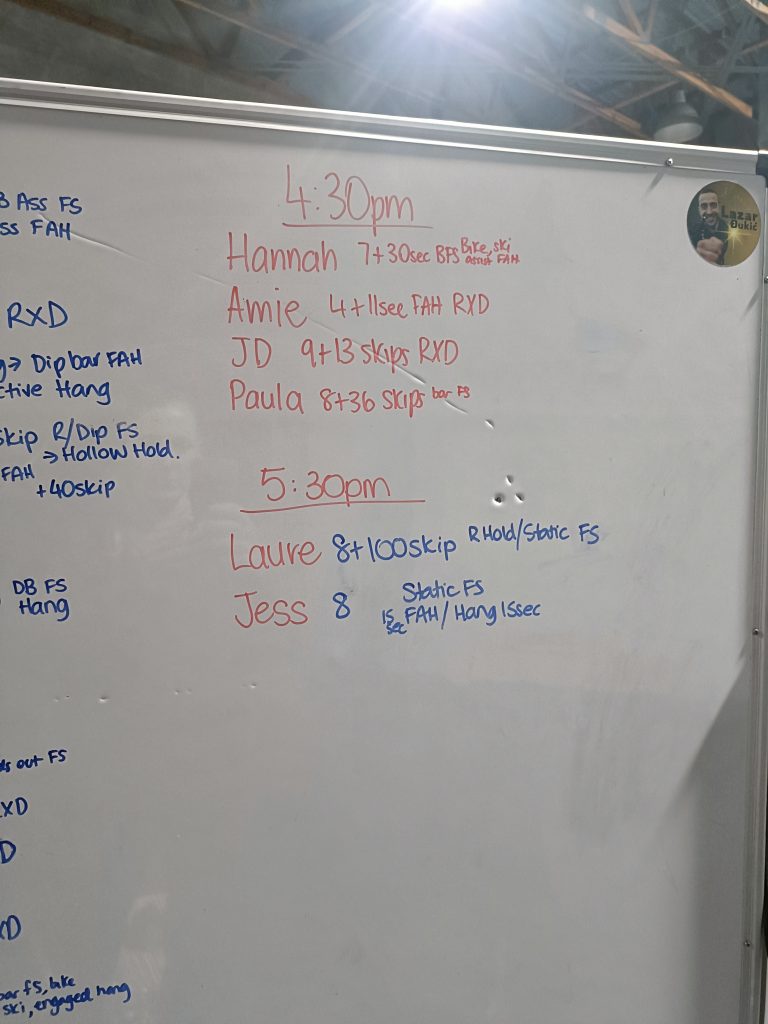 B Ass FS
ss FAH
RXD
→ Dip bar FAH
ctive Hang
skip R/Dip FS
→ Hollow Hold.
FAH
+40skip
DB FS
Hang
out FS
XD
D
XD
bar FS, bike
ski, engaged hang
4:30pm
Hannah 7+30sec BFS Bike, ski
assist FAH
Amie 4+11sec FAH RXD
JD 9+13 skips RXD
Paula 8+36 skips bar FS
5:30pm
Laure 8+100skip R Hold/Static FS
Jess 8 Static FS
15 sec FAH/Hang 15sec
Lazar
Đukić